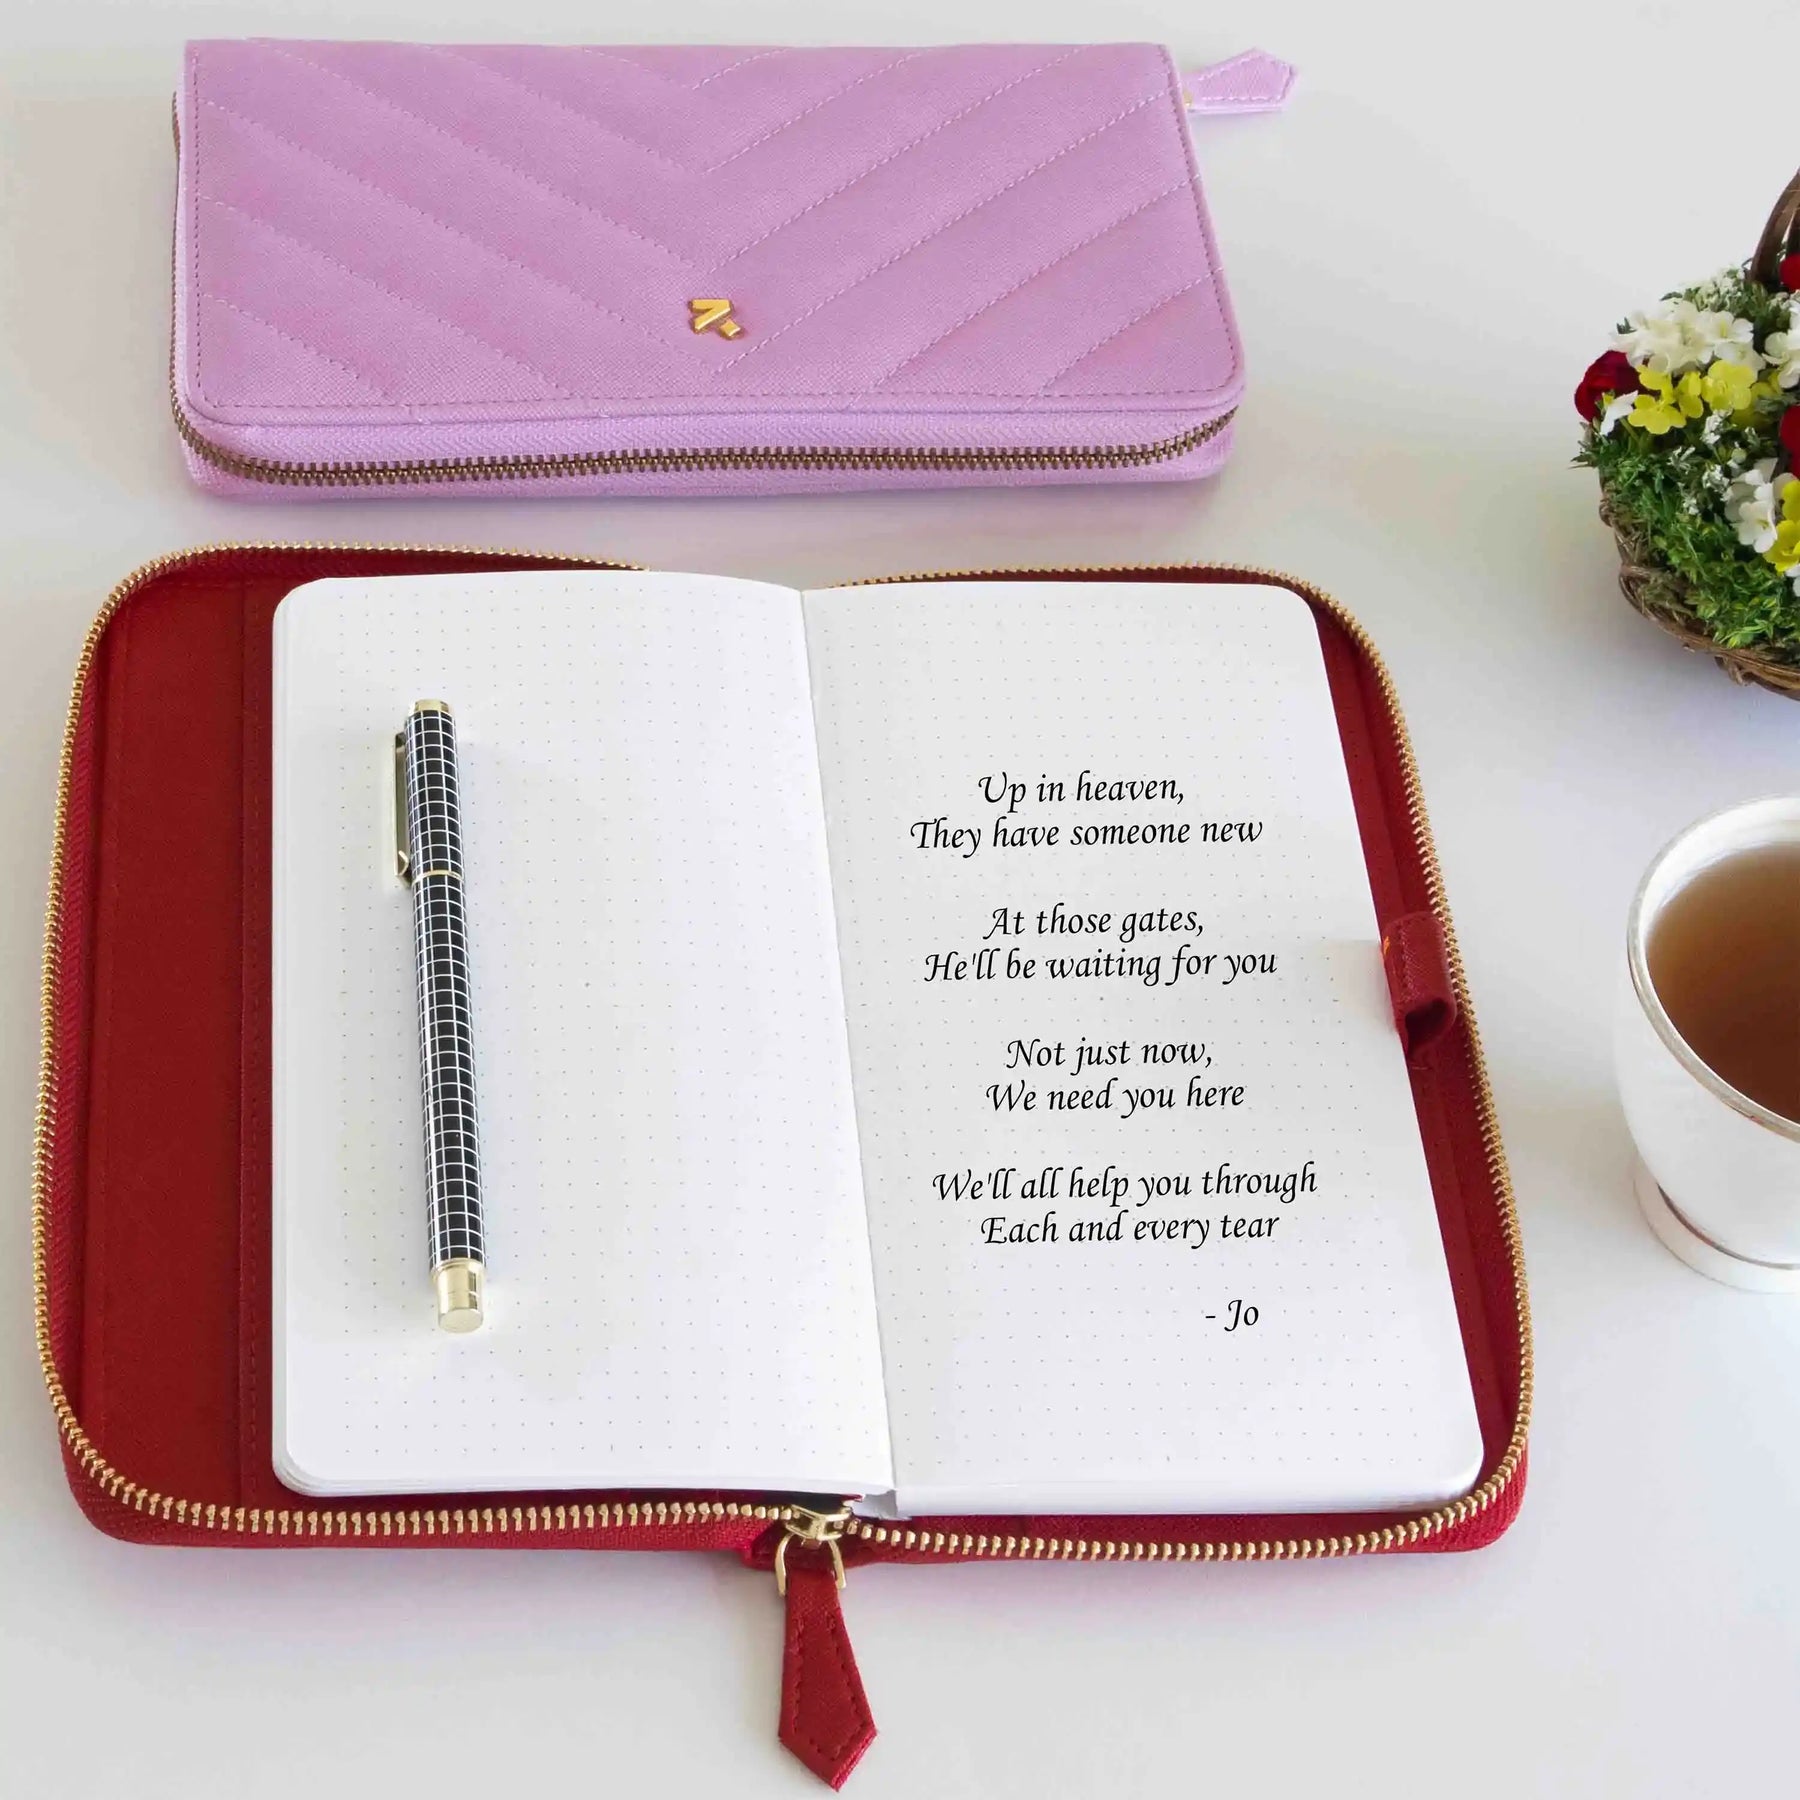 Up in heaven,
They have someone new
At those gates,
He'll be waiting for you
Not just now,
We need you here
We'll all help you through
Each and every tear
- Jo